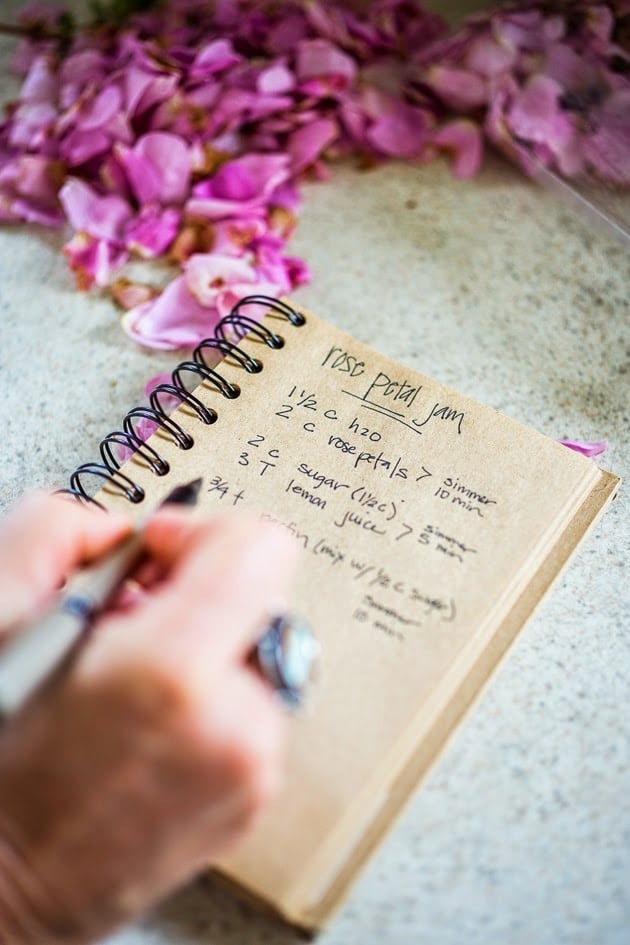 rose petal jam
1 1/2 c h2o
2 c rose petals > simmer
10 min
2 c sugar (1 1/2 c)
3 T lemon juice > simmer
5 min
3/4 t (mix w/ 1/2 c sugar)
simmer
10 min